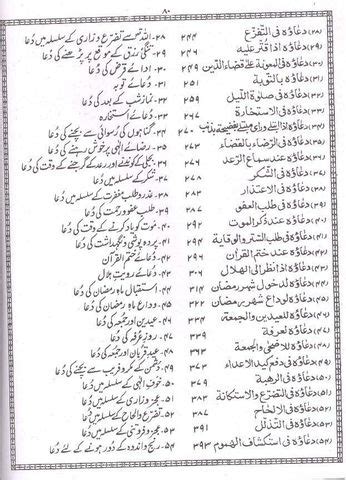 ۸۰
(۲۸) دعاؤہ فی التفزع ۲۴۴ ۲۸۔ اللہ سے تضرع و زاری کے سلسلہ میں دُعا
(۲۹) دعاؤہ اذا قتر علیہ ۲۴۶ ۲۹۔ تنگی رزق کے موقع پر پڑھنے کی دُعا
(۳۰) دعاؤہ فی المعونة علی قضاء الدین ۲۴۹ ۳۰۔ ادائے قرض کی دُعا
(۳۱) دعاؤہ بالتوبة ۲۵۱ ۳۱۔ دُعائے توبہ
(۳۲) دعاؤہ فی صلوٰة اللیل ۲۵۹ ۳۲۔ نماز شب کے بعد کی دُعا
(۳۳) دعاؤہ فی الاستخارة ۲۶۷ ۳۳۔ دُعائے استخارہ
(۳۴) دعاؤہ اذا ابتلی ورای مبتلی بفضیحة بذنب ۲۷۰ ۳۴۔ گناہوں کی رسوائی سے بچنے کی دُعا
(۳۵) دعاؤہ فی الرضاء بالقضاء ۲۷۳ ۳۵۔ رضائے الٰہی پر خوش رہنے کی دُعا
(۳۶) دعاؤہ عند سماع الرعد ۲۷۶ ۳۶۔ بجلی کے کوندنے اور رعد کے گرجنے کے وقت کی دُعا
(۳۷) دعاؤہ فی الشکر ۲۷۸ ۳۷۔ شکر کے سلسلہ میں دُعا
(۳۸) دعاؤہ فی الاعتذار ۲۸۳ ۳۸۔ عذر و طلب مغفرت کے سلسلہ میں دُعا
(۳۹) دعاؤہ فی طلب العفو ۲۸۷ ۳۹۔ طلب عفو و رحمت کی دُعا
(۴۰) دعاؤہ عند ذکر الموت ۲۹۲ ۴۰۔ موت کو یاد کرنے کے وقت کی دُعا
(۴۱) دعاؤہ فی طلب الستر والوقایة ۲۹۴ ۴۱۔ پردہ پوشی و نگہداشت کی دُعا
(۴۲) دعاؤہ عند ختم القرآن ۲۹۶ ۴۲۔ دُعائے ختم القرآن
(۴۳) دعاؤہ اذا نظر الی الہلال ۳۰۶ ۴۳۔ دُعائے رویت ہلال
(۴۴) دعاؤہ لدخول شہر رمضان ۳۱۴ ۴۴۔ استقبال ماہ رمضان کی دُعا
(۴۵) دعاؤہ لوداع شہر رمضان ۳۲۲ ۴۵۔ وداع ماہ رمضان کی دُعا
(۴۶) دعاؤہ للعیدین والجمعة ۳۳۶ ۴۶۔ عیدین اور جمعہ کی دُعا
(۴۷) دعاؤہ لعرفة ۳۴۱ ۴۷۔ روز عرفہ کی دُعا
(۴۸) دعاؤہ للاضحٰی والجمعة ۳۶۳ ۴۸۔ عید قربان اور جمعہ کی دُعا
(۴۹) دعاؤہ فی دفع کید الاعداء ۳۷۳ ۴۹۔ دشمن کے مکر و فریب سے بچنے کی دُعا
(۵۰) دعاؤہ فی الرھبة ۳۷۹ ۵۰۔ خوف الٰہی کے سلسلہ میں دُعا
(۵۱) دعاؤہ فی التضرع والاستکانة ۳۸۳ ۵۱۔ عجز و زاری کے سلسلہ میں دُعا
(۵۲) دعاؤہ فی الالحاح ۳۸۷ ۵۲۔ تضرع و الحاح کے سلسلہ میں دُعا
(۵۳) دعاؤہ فی التذلل ۳۹۱ ۵۳۔ عجز و فروتنی کے سلسلہ میں دُعا
(۵۴) دعاؤہ فی استکشاف الھموم ۳۹۳ ۵۴۔ رنج و اندوہ کے دور ہونے کے لئے دُعا